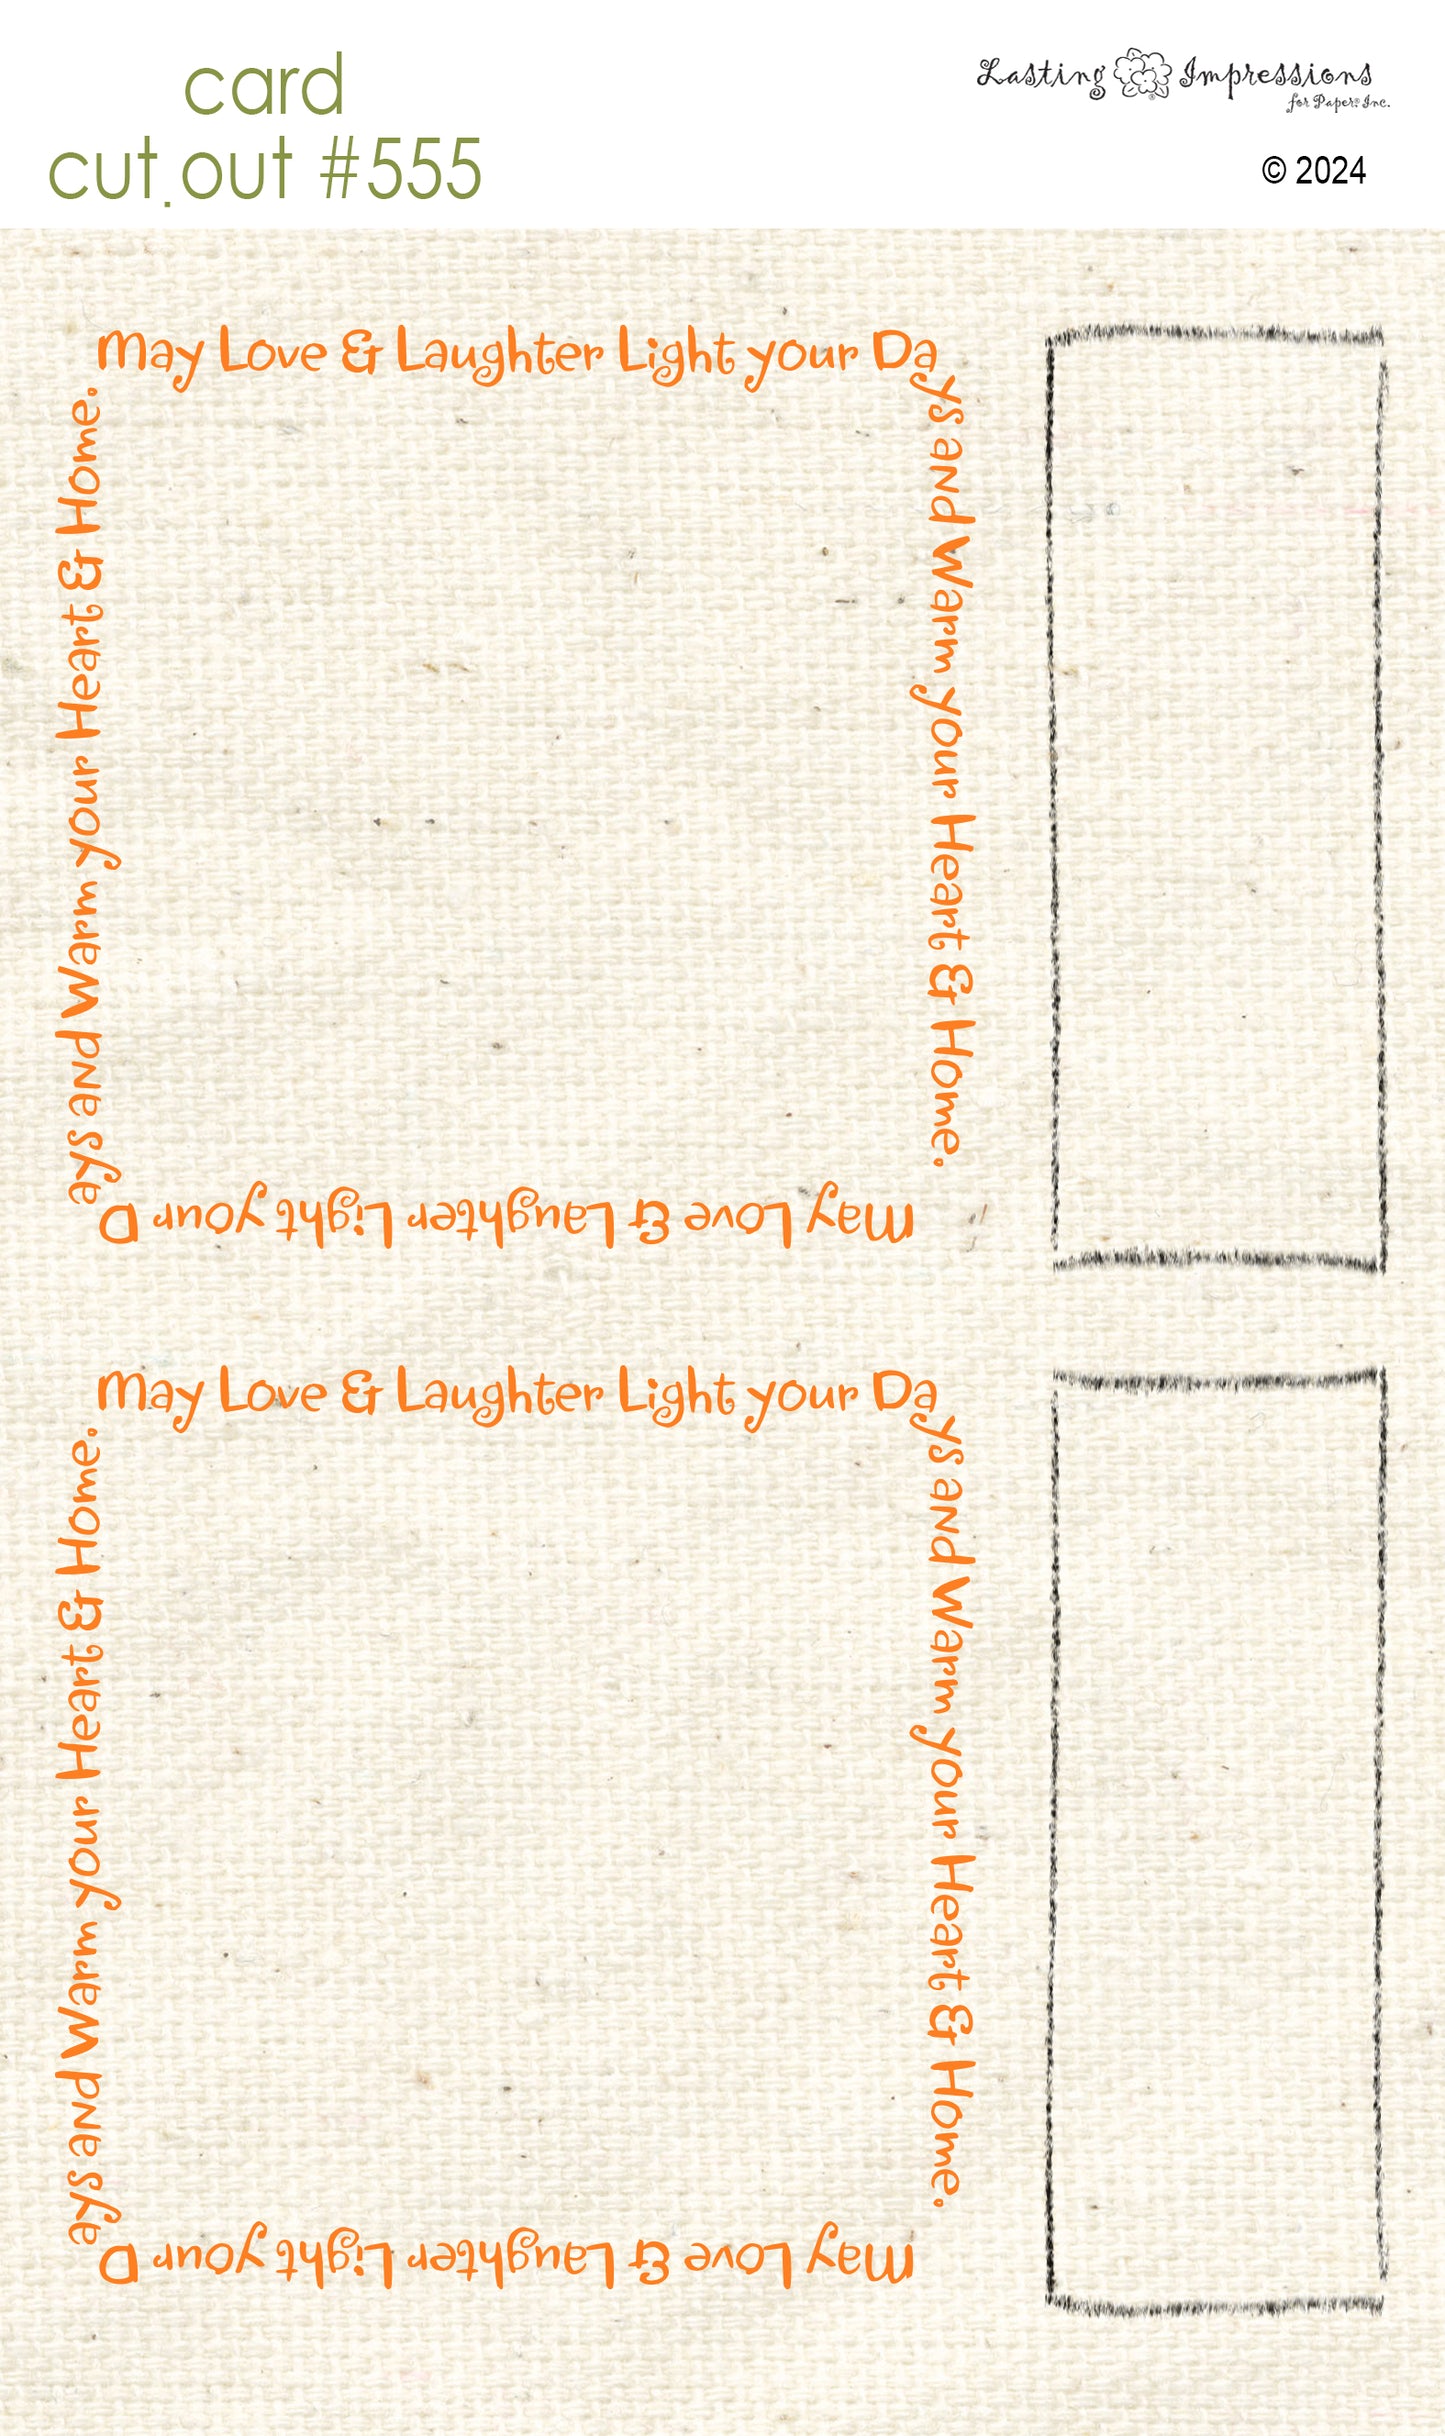 card
cut.out #555
Lasting Impressions
for Paper, Inc.
© 2024
May Love & Laughter Light your Days and Warm your Heart & Home.
May Love & Laughter Light your Days and Warm your Heart & Home.
May Love & Laughter Light your Days and Warm your Heart & Home.
May Love & Laughter Light your Days and Warm your Heart & Home.